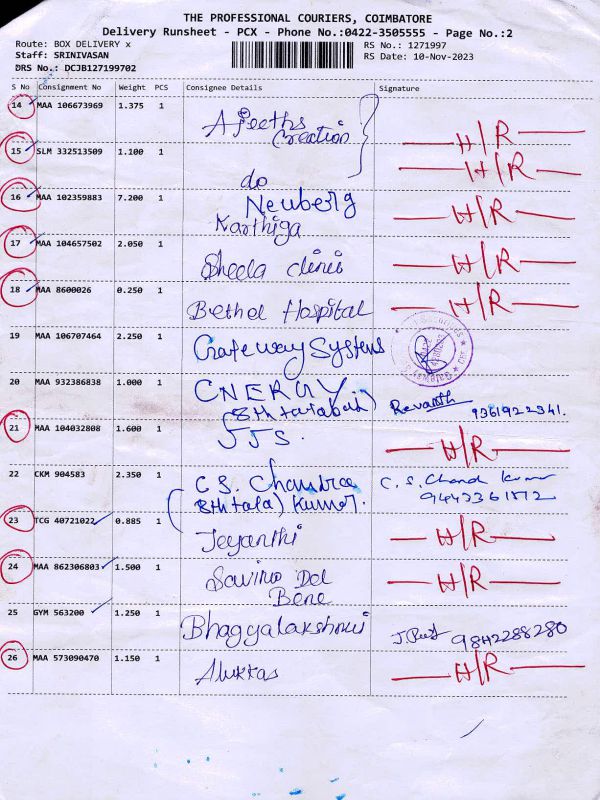 THE PROFESSIONAL COURIERS, COIMBATORE
Delivery Runsheet - PCX - Phone No.:0422-3505555 - Page No.:2
Route: BOX DELIVERY x
Staff: SRINIVASAN
DRS No.: DCJB127199702
RS No.: 1271997
RS Date: 10-Nov-2023
S No Consignment No Weight PCS Consignee Details Signature
14 MAA 106673969 1.375 1 Ajeeths Creation H/R
15 SLM 332513509 1.100 1 do H/R
16 MAA 102359883 7.200 1 Neuberg Karthiga H/R
17 MAA 104657502 2.050 1 Sheela clinic H/R
18 MAA 8600026 0.250 1 Bethel Hospital H/R
19 MAA 106707464 2.250 1 Gateway Systems
20 MAA 932386838 1.000 1 CNERGY Revanth 9361922341.
21 MAA 104032808 1.600 1 JJS. H/R
22 CKM 904583 2.350 1 C S. Chandra Kumar. C. S. Chand Kumar
23 TCG 40721022 0.885 1 Jeyanthi H/R
24 MAA 862306803 1.500 1 Savino Del Bene H/R
25 GYM 563200 1.250 1 Bhagyalakshmi 9842288280
26 MAA 573090470 1.150 1 Alukkas H/R